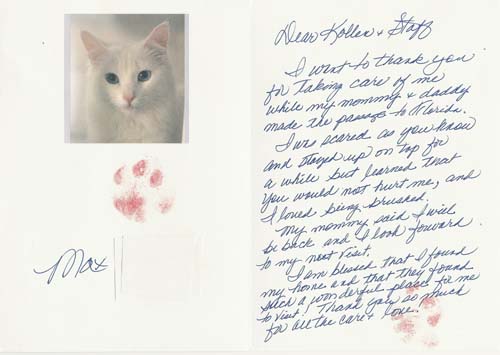 Max
Dear Kollen & Staff
I want to thank you
for taking care of me
while my mommy & daddy
made the passage to Florida.
I was scared as you know
and stayed up on top for
a while but learned that
you would not hurt me, and
I loved being brushed.
My mommy said I will
be back and I look forward
to my next visit.
I am blessed that I found
my home and that they found
such a wonderful place for me
to visit! Thank you so much
for all the care & love!